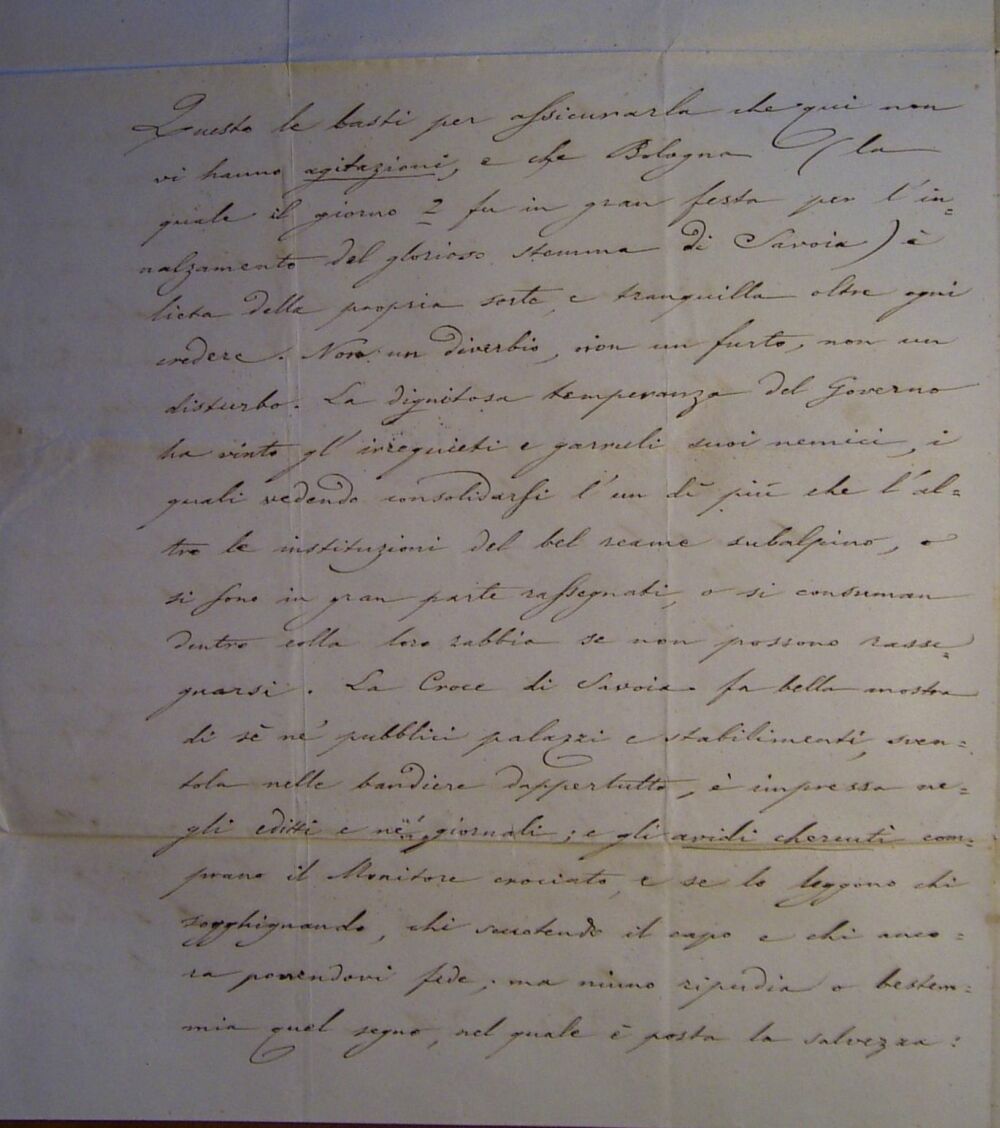 Questo le basti per assicurarla che qui non
vi hanno agitazioni, e che Bologna (la
quale il giorno 2 fu in gran festa per l'in=
nalzamento del glorioso stemma di Savoia) è
lieta della propria sorte, e tranquilla oltre ogni
credere. Non un diverbio, non un furto, non un
disturbo. La dignitosa temperanza del Governo
ha vinto gl' irrequieti e garruli suoi nemici, i
quali vedendo consolidarsi l'un dì più che l'al=
tro le instituzioni del bel reame subalpino, o
si sono in gran parte rassegnati, o si consuman
dentro colla loro rabbia se non possono rasse=
gnarsi. La Croce di Savoia fa bella mostra
di sè ne' pubblici palazzi e stabilimenti, sven=
tola nelle bandiere dappertutto, è impressa ne=
gli editti e ne' giornali; e gli avidi chercuti com=
prano il Monitore crociato, e se lo leggono chi
sogghignando, chi scuotendo il capo e chi anco=
ra ponendovi fede; ma niuno ripudia o bestem=
mia quel segno, nel quale è posta la salvezza: